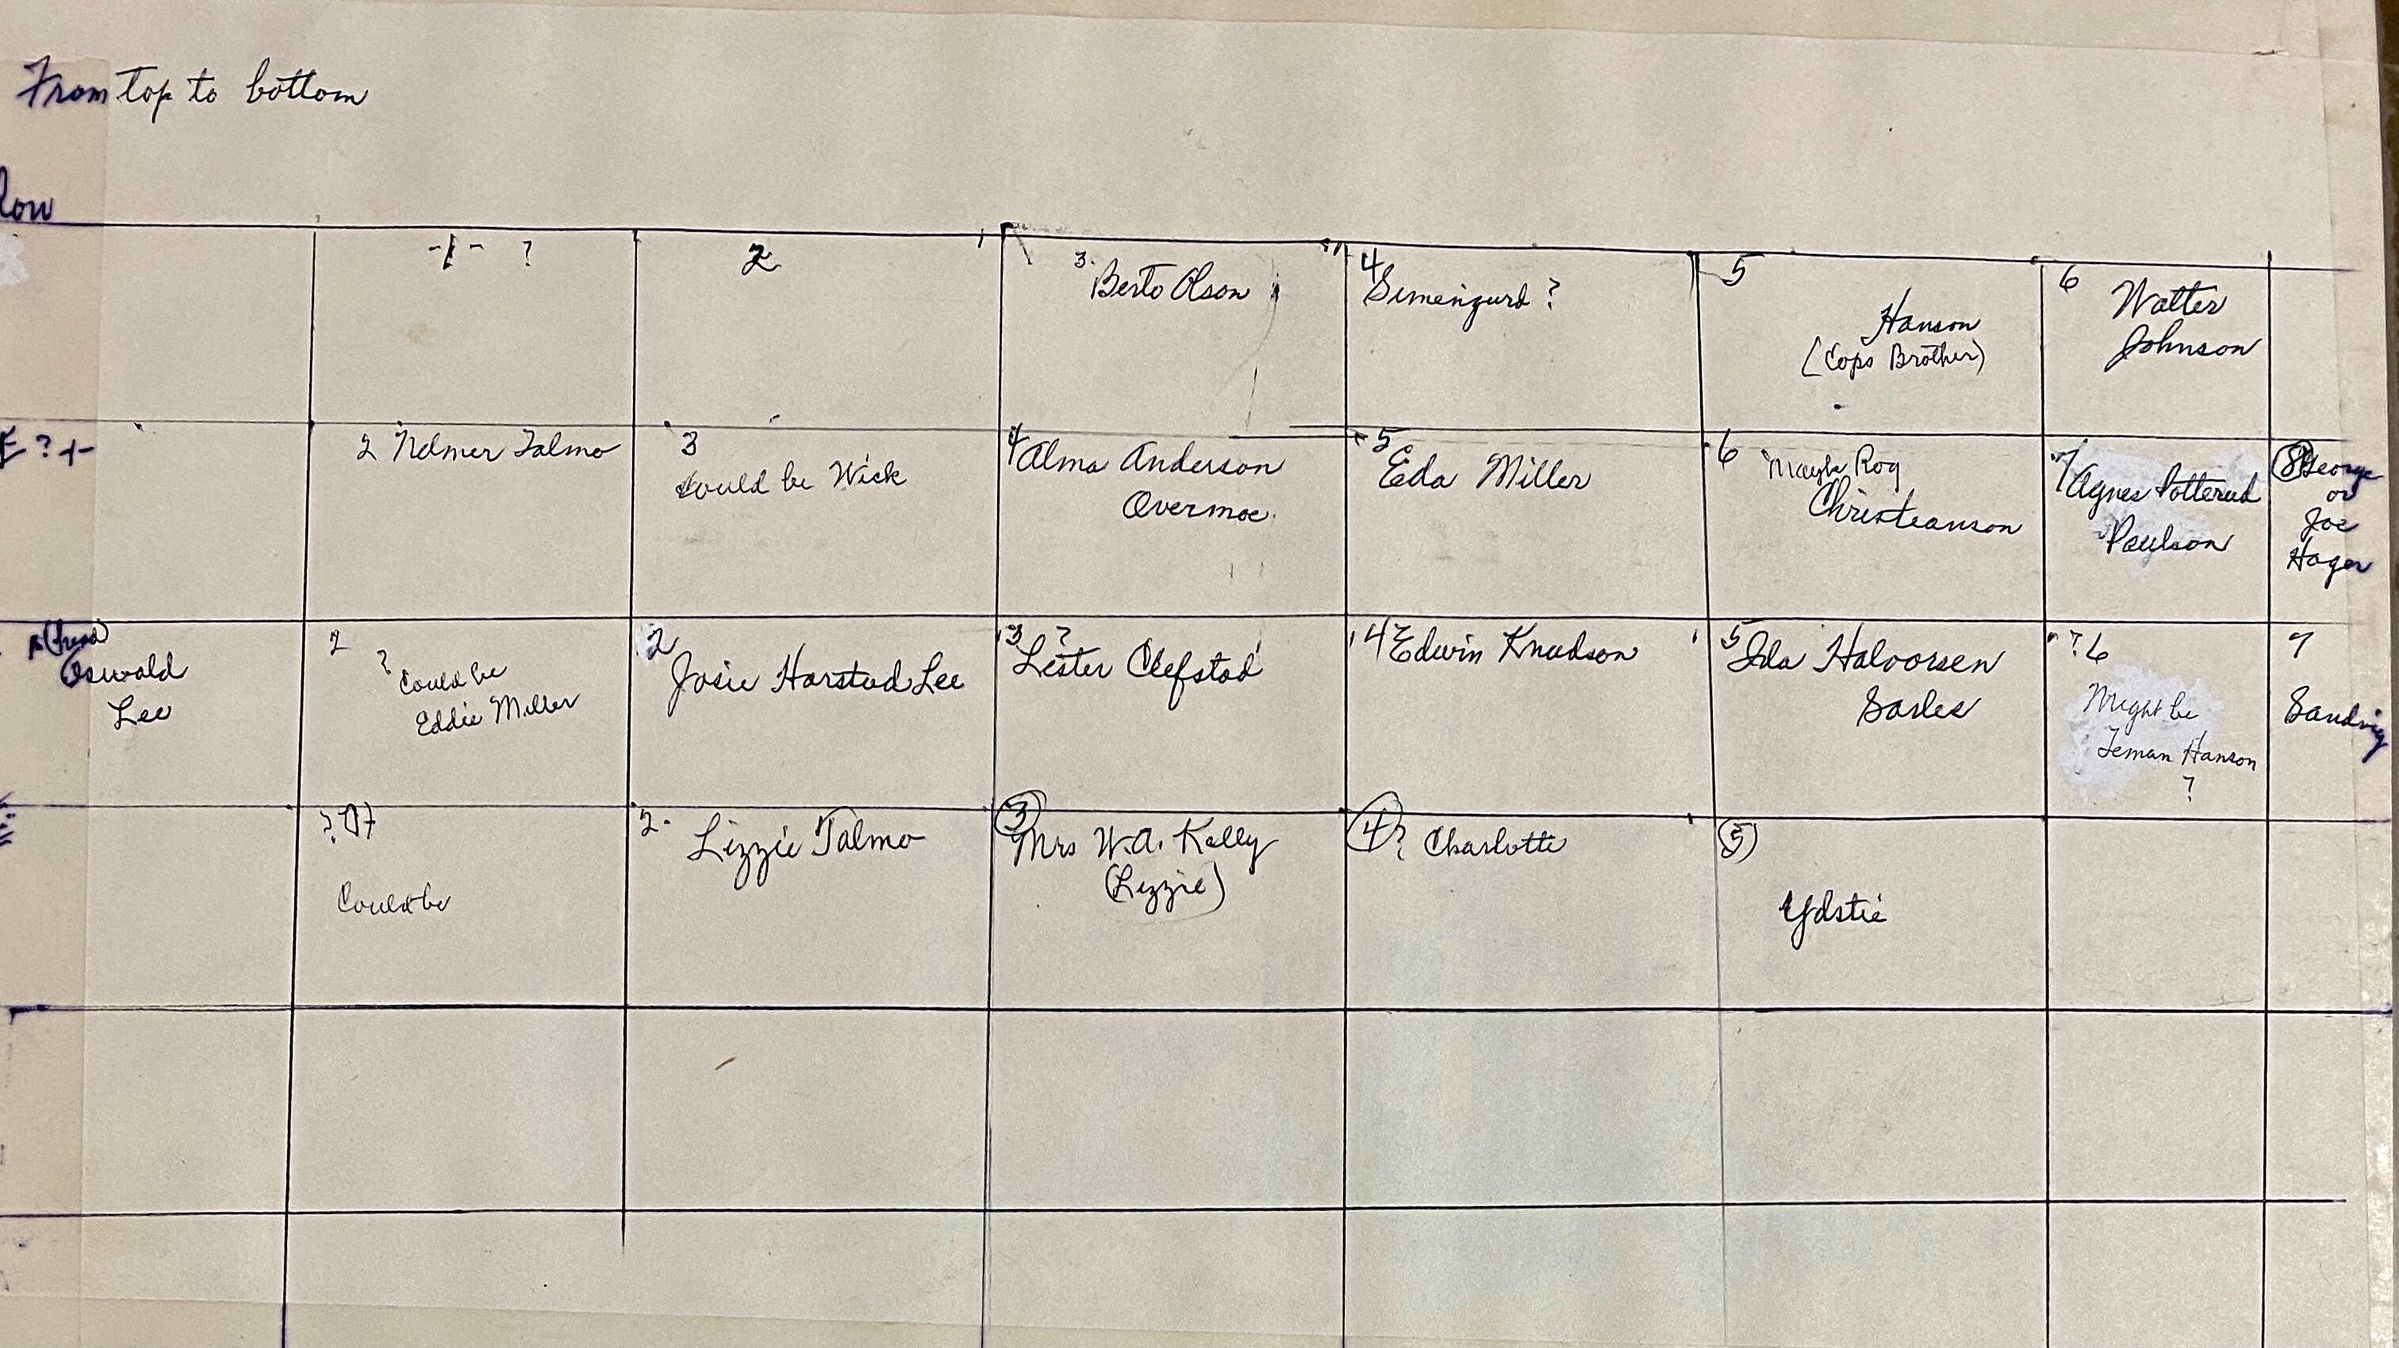 From top to bottom
Row
-1- ?
2
3. Berto Olson
4 Simengurd ?
5
Hanson
(Cops Brother)
6 Walter
Johnson
? 1
2 Nelmer Talmo
3
Could be Wick
4 Alma Anderson
Overmoe
5
Eda Miller
6 Maybe Roy
Christianson
7 Agnes Potterud
Paulson
8 George
or
Joe
Hager
Oswald
Lee
2
? Could be
Eddie Miller
2
Josie Harstad Lee
3 ?
Lester Clefstad
4 Edwin Knudson
5 Ida Halvorsen
Sarles
? 6
Might be
Teman Hanson
?
7
Sandvig
?
Could be
2. Lizzie Talmo
3
Mrs W.A. Kelly
(Lizzie)
4 ? Charlotte
5
Ydstie